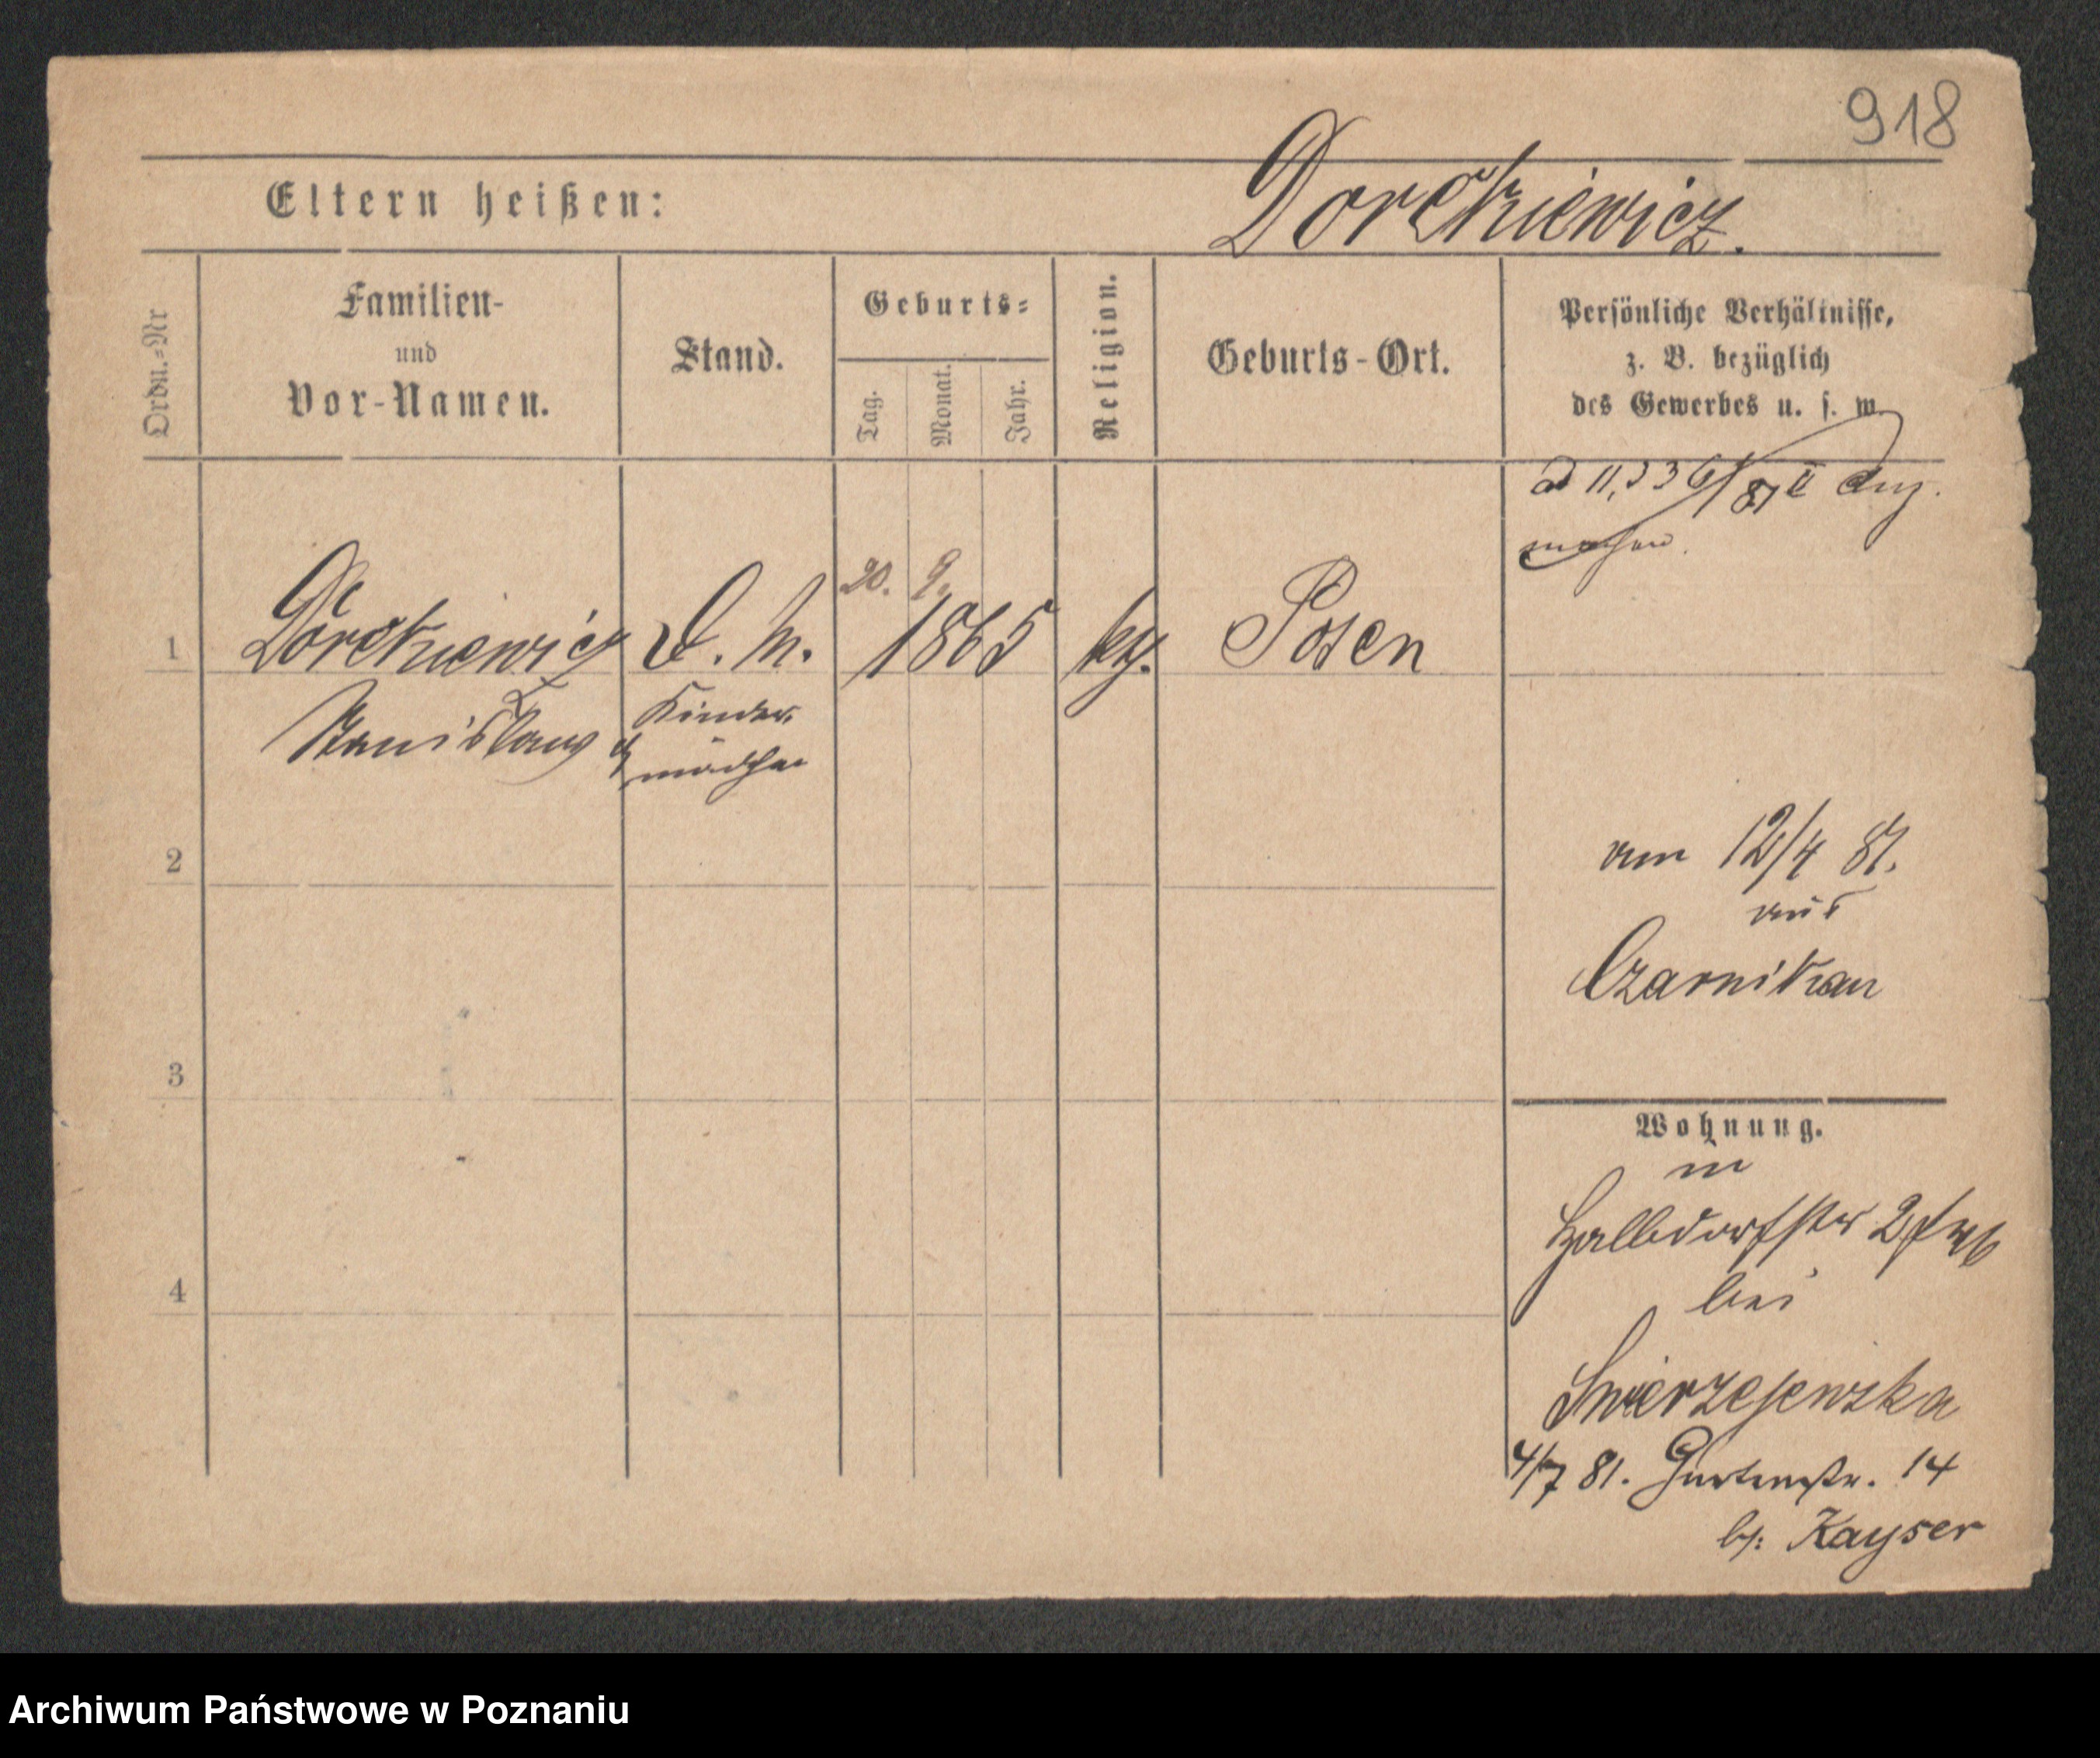 918
Eltern heißen:
Dorctkiewicz.
Ordn.-Nr
Familien-
und
Vor-Namen.
Stand.
Geburts-
Tag.
Monat.
Jahr.
Religion.
Geburts-Ort.
Persönliche Verhältnisse,
z. B. bezüglich
des Gewerbes u. s. w.
ad 11,336/81 II
20. 9.
1
D. M.
1865
Posen
Stanislaus
Kinder
mädchen
2
am 12/4 81.
aus
Czarnikau
3
Wohnung.
in
Halbdorfstr
4
bei
Swierzejewska
4/7 81. Gartenstr. 14
b/: Kayser
Archiwum Państwowe w Poznaniu